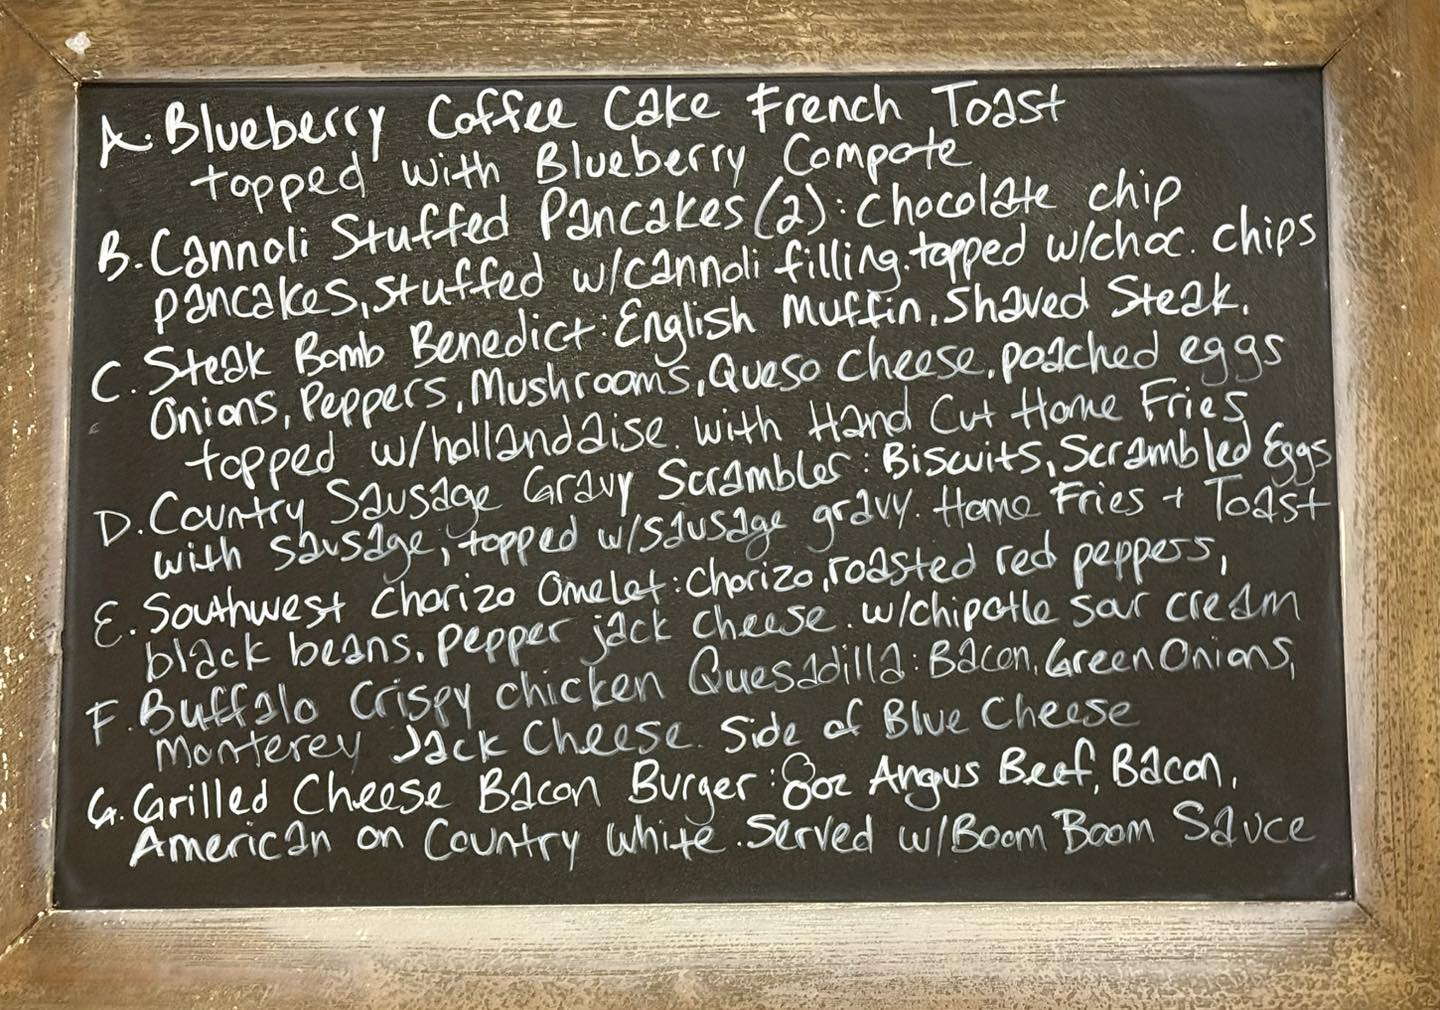 A. Blueberry Coffee Cake French Toast
topped with Blueberry Compote
B. Cannoli Stuffed Pancakes (2): chocolate chip
pancakes, stuffed w/cannoli filling. topped w/choc. chips
C. Steak Bomb Benedict: English Muffin, Shaved Steak,
Onions, Peppers, Mushrooms, Queso Cheese, poached eggs
topped w/hollandaise. with Hand Cut Home Fries
D. Country Sausage Gravy Scrambler: Biscuits, Scrambled Eggs
with sausage, topped w/sausage gravy. Home Fries + Toast
E. Southwest Chorizo Omelet: Chorizo, roasted red peppers,
black beans, pepper jack cheese. w/chipotle sour cream
F. Buffalo Crispy chicken Quesadilla: Bacon, Green Onions,
Monterey Jack Cheese. Side of Blue Cheese
G. Grilled Cheese Bacon Burger: 8oz Angus Beef, Bacon,
American on Country White. Served w/Boom Boom Sauce